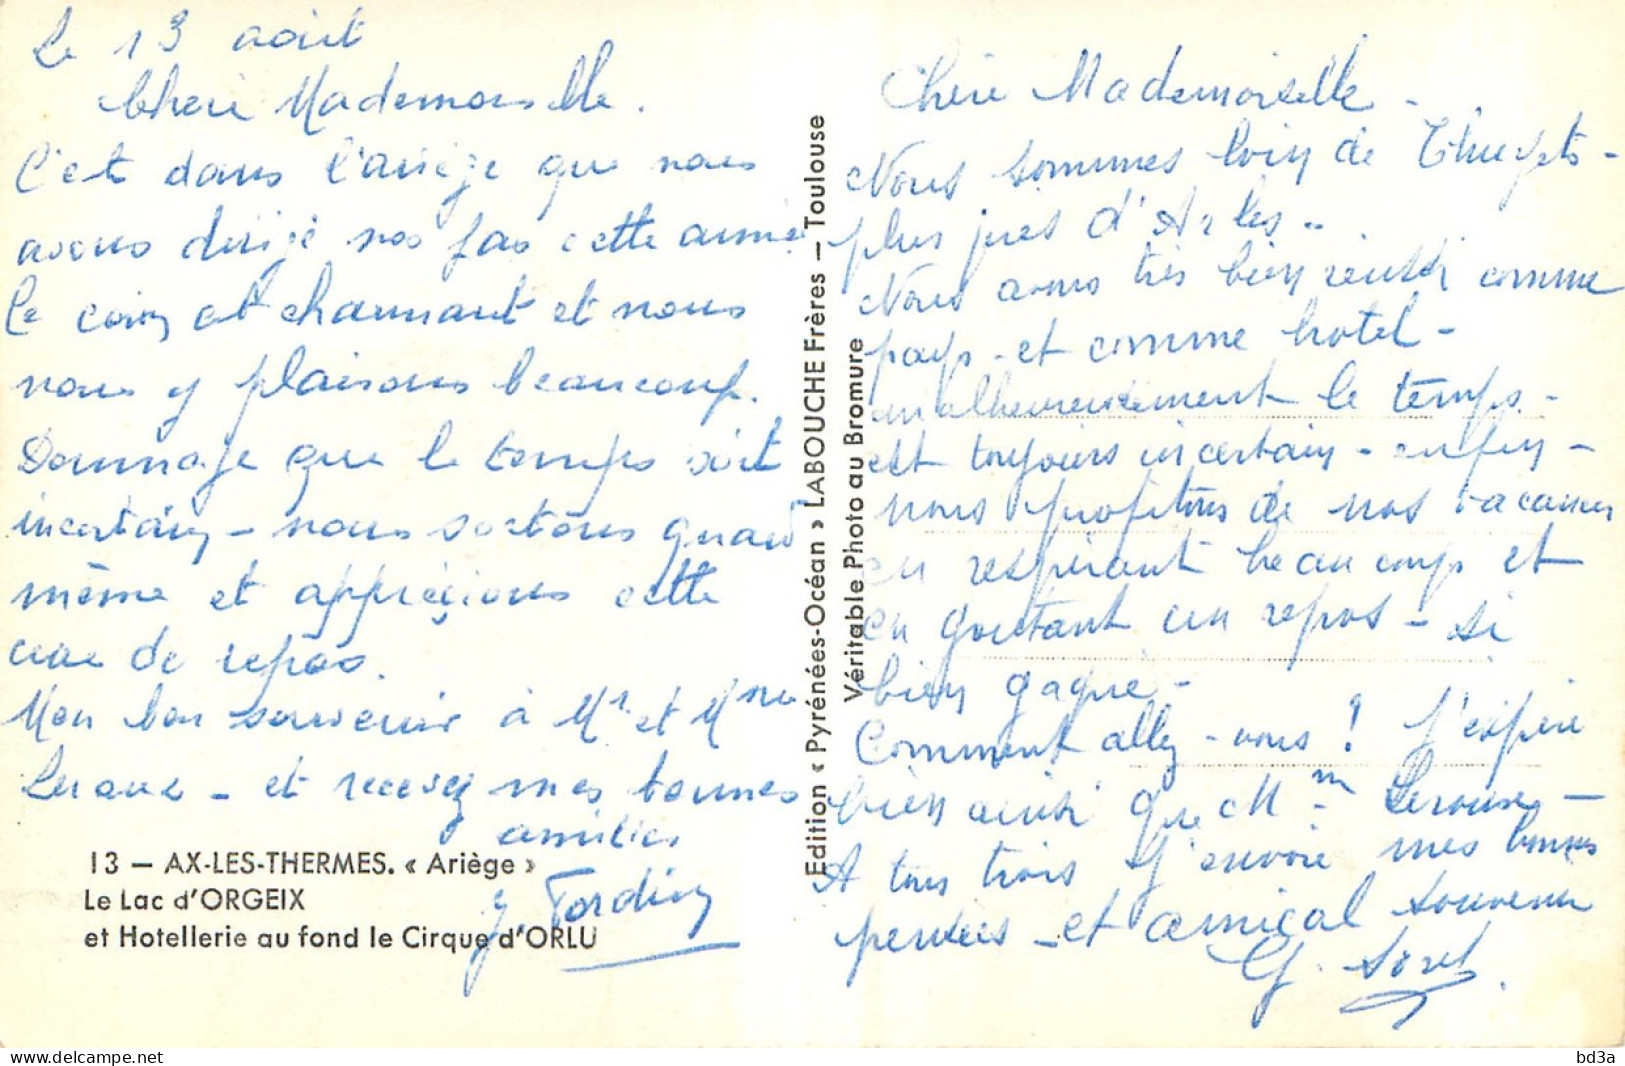 Le 13 août
Chère Mademoiselle.
C'est dans l'ariège que nous
avons dirigé nos pas cette année
Le coin est charmant et nous
nous y plaisons beaucoup.
Dommage que le temps soit
incertain - nous sortons quand
même et apprécions cette
cure de repos.
Mon bon souvenir à Mr et Mme
Leroux - et recevez mes bonnes
amitiés
Y Tardieu
13 — AX-LES-THERMES. « Ariège »
Le Lac d'ORGEIX
et Hotellerie au fond le Cirque d'ORLU
Edition « Pyrénées-Océan » LABOUCHE Frères — Toulouse
Véritable Photo au Bromure
Chère Mademoiselle -
Nous sommes loin de Thueyts -
plus près d'Arles..
Nous avons très bien réussi comme
pays - et comme hotel -
malheureusement le temps -
est toujours incertain - enfin -
nous profitons de nos vacances
en respirant beaucoup et
en goutant un repos - si
bien gagné -
Comment allez-vous ! J'espère
bien ainsi que Mme Leroux -
A tous trois j'envoie mes bonnes
pensées - et amical souvenir
G. Sorel
bd3a